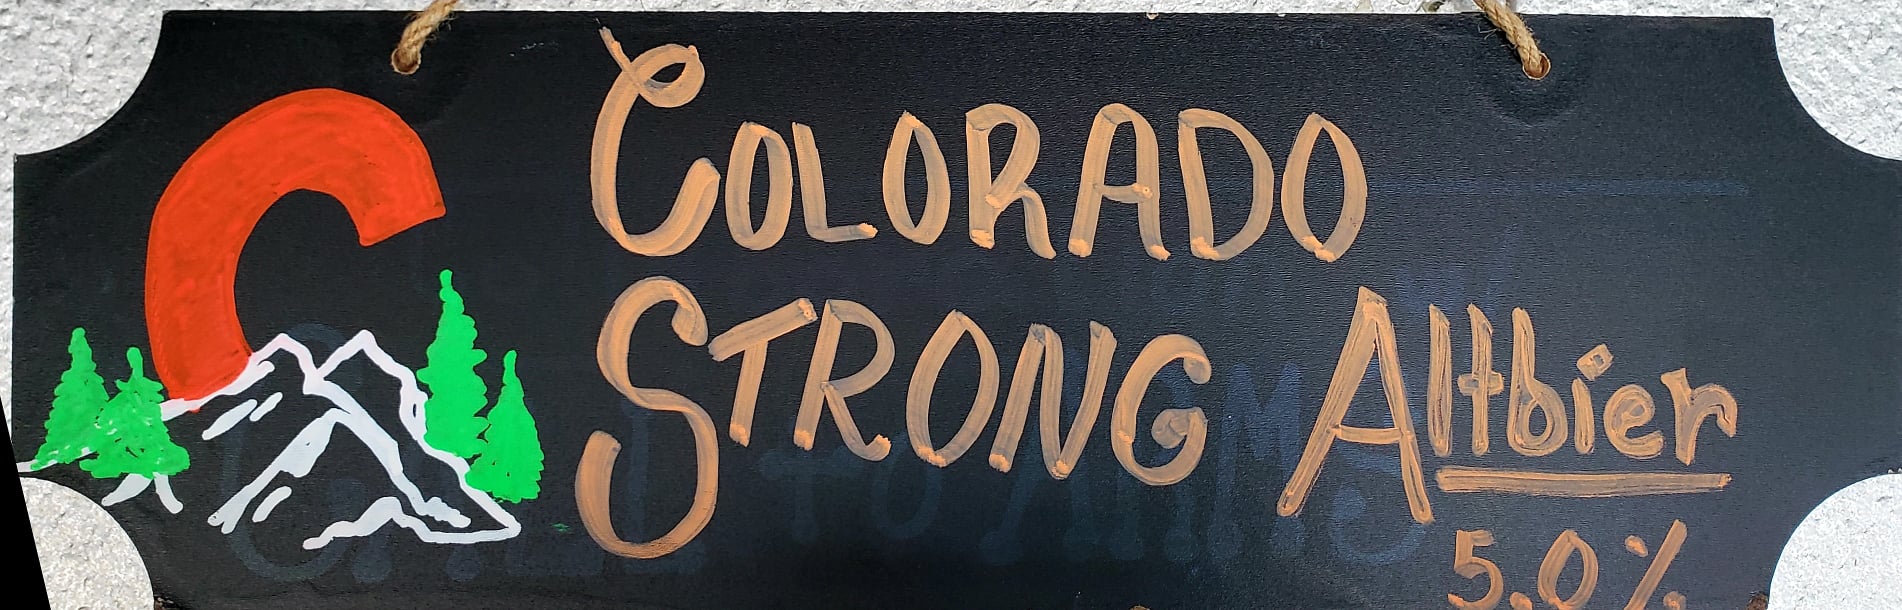 COLORADO
STRONG Altbier
5.0%